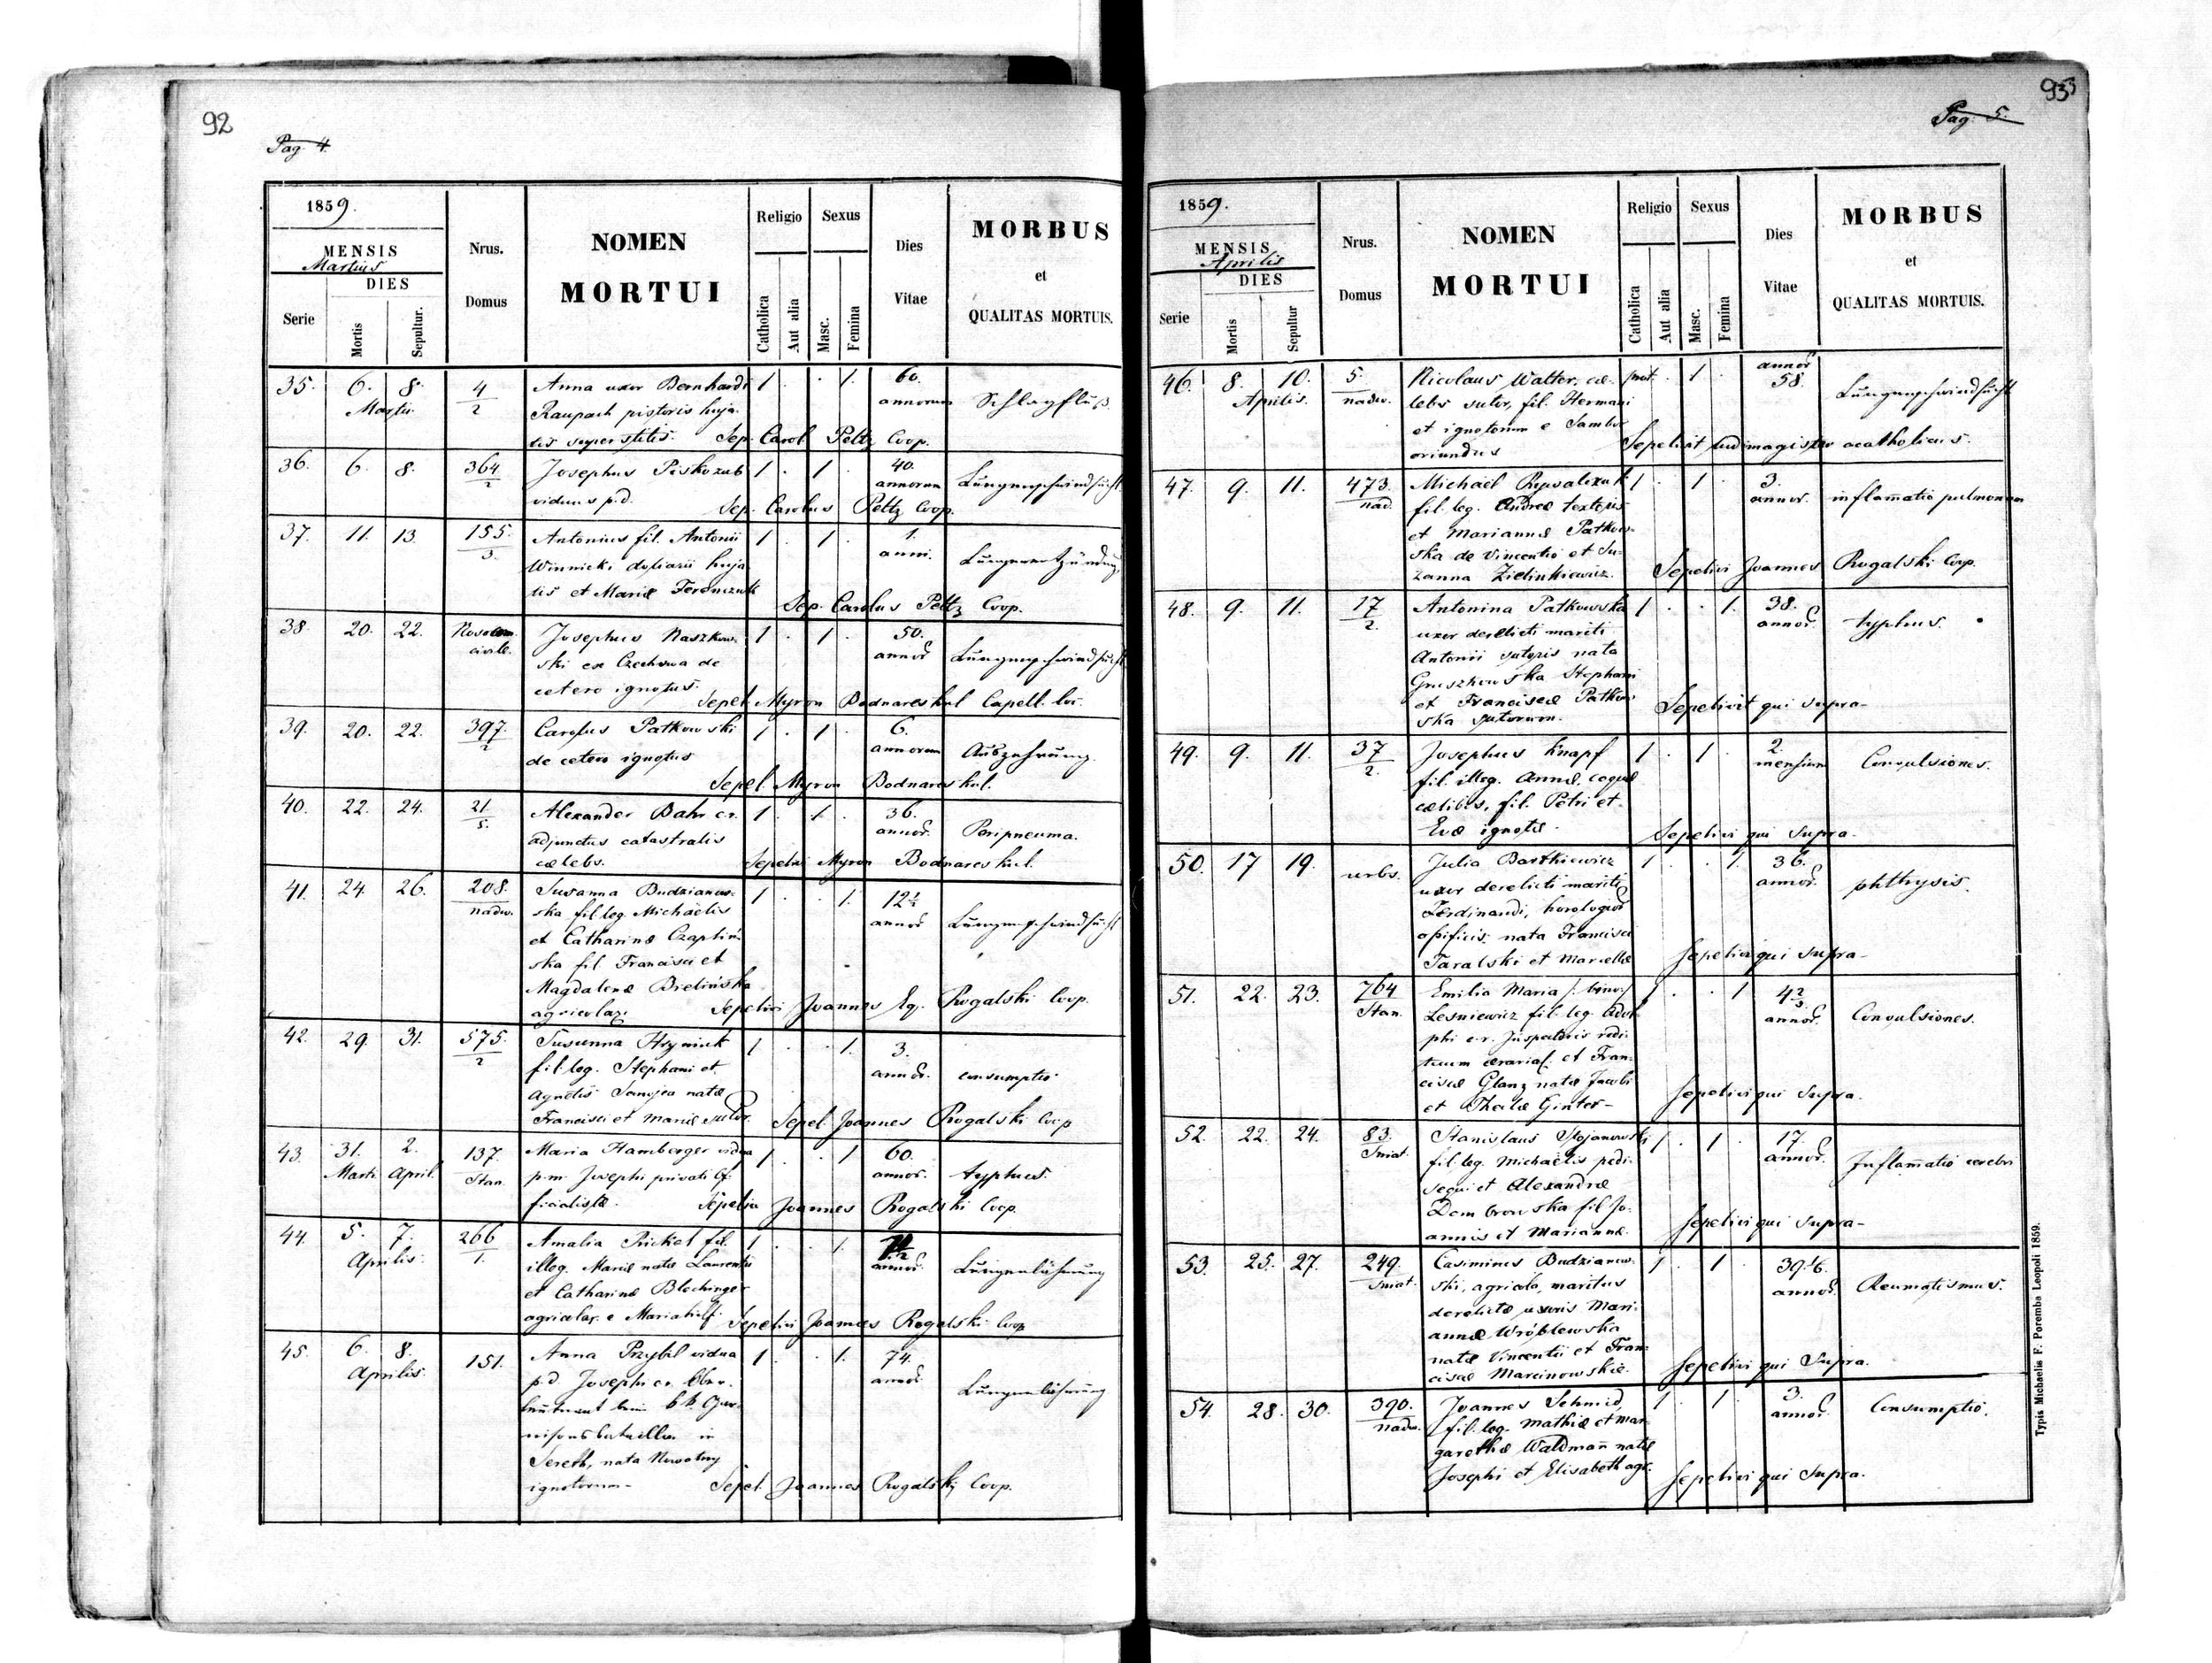 92
Pag. 4.
1859.
MENSIS
Martius
DIES
Serie
Mortis
Sepultur.
Nrus.
Domus
NOMEN
MORTUI
Religio
Catholica
Aut alia
Sexus
Masc.
Femina
Dies
Vitae
MORBUS
et
QUALITAS MORTUIS.
35. 6. 8. 4/2 Anna uxor Bernhardi 1 . . 1. 60.
Martii Raupach pistoris huja- annorum Schlagfluß
tis superstitis. Sep. Carol Peltz Coop.
36. 6. 8. 364/2 Josephus Piskozub 1 . 1 . 40.
viduus p.d. annorum Lungenschwindsucht
Sep. Carolus Peltz Coop.
37. 11. 13. 155./3. Antonius fil. Antonii 1 . 1 . 1.
Winnicki doliarii huja- anni. Lungenentzündung
tis et Mariæ Ferenczuk
Sep. Carolus Peltz Coop.
38. 20. 22. Nosocom. civile. Josephus Naszkow- 1 . 1 . 50.
ski ex Czechowa de annor Lungenschwindsucht
cetero ignotus.
Sepel. Myron Bodnareskul Capell. loc.
39. 20. 22. 397./2 Carolus Patkowski 1 . 1 . 6.
de cetero ignotus annorum Auszehrung.
Sepel. Myron Bodnareskul.
40. 22. 24. 21/5. Alexander Bahr c.r. 1 . 1 . 36.
adjunctus catastralis annor. Peripneuma.
cælebs. Sepelivi Myron Bodnareskul.
41. 24 26. 208./nadw. Susanna Budzianow- 1 . . 1. 12½
ska fil. leg. Michaëlis annor Lungenschwindsucht
et Catharinæ Czapliń-
ska fil. Francisci et
Magdalenæ Bielińska
agricolar. Sepelivi Joannes Eq. Rogalski Coop.
42. 29. 31. 575./2 Susanna Hryniuk 1 . . 1. 3.
fil. leg. Stephani et annor. consumptio
Agnetis natæ
Francisci et Mariæ sutor. Sepel. Joannes Rogalski Coop
43. 31. 2. 137./Stan. Maria Hamberger vidua 1 . . 1 60.
Martii April. p.m. Josephi privati of- annor. typhus.
ficialistæ. Sepelivi Joannes Rogalski Coop.
44. 5. 7. 266/1. Amalia Pickel fil. 1 . . 1.
Aprilis. illeg. Mariæ natæ Laurentii annor. Lungenlähmung
et Catharinæ Blechinger
agricolar. e Mariahilf. Sepelivi Joannes Rogalski Coop
45. 6. 8. 151. Anna Przybil vidua 1 . . 1. 74.
Aprilis. p.d. Josephi c.r. Ober- annor Lungenlähmung
leutnant beim k.k. Gar-
nisonsbataillon in
Sereth, nata Nowotny
ignotorum- Sepel. Joannes Rogalski Coop.
93
Pag. 5.
1859.
MENSIS
Aprilis
DIES
Serie
Mortis
Sepultur
Nrus.
Domus
NOMEN
MORTUI
Religio
Catholica
Aut alia
Sexus
Masc.
Femina
Dies
Vitae
MORBUS
et
QUALITAS MORTUIS.
46. 8. 10. 5./nadw. Nicolaus Walter, cæ- prot. . 1 . annor 58.
Aprilis. lebs sutor, fil. Hermani Lungenschwindsucht
et ignotorum e Sambor
oriundus Sepelivit ludimagister acatholicus.
47. 9. 11. 473./nad. Michaël 1 . 1 . 3.
fil. leg. Andreæ textoris annor. inflamatio pulmonum
et Mariannæ Patkow-
ska de Vincentio et Su-
zanna Zielinkiewicz. Sepelivi Joannes Rogalski Coop.
48. 9. 11. 17/2. Antonina Patkowska 1 . . 1. 38.
uxor derelicti mariti annor. typhus.
Antonii sutoris nata
Gruszkowska Stephani
et Franciscæ Patkow-
ska sutorum. Sepelivit qui supra-
49. 9. 11. 37/2. Josephus Knapf 1 . 1 . 2.
fil. illeg. Annæ, coquæ mensium Convulsiones.
cælibis, fil. Petri et
Evæ ignotæ. Sepelivi qui Supra.
50. 17 19. urbs. Julia Bartkiewicz 1 . . 1. 36.
uxor derelicti mariti annor. phthysis.
Ferdinandi, horologior
opificis nata Francisci
Taralski et Marcellæ Sepelivi qui supra-
51. 22. 23. 764/Stan. Emilia Maria /: bino:/ 1 . . 1 4⅔
Lesniewicz fil. leg. Adol- annor. Convulsiones.
phi c.r. Inspectoris redi-
tuum ærarial. et Fran-
ciscæ Glanz natæ Jacobi
et Theclæ Ginter- Sepelivi qui Supra.
52. 22. 24. 83./Sniat. Stanislaus Stojanowski 1 . 1 . 17.
fil. leg. Michaëlis pedi- annor. Inflamatio cerebri
sequi et Alexandræ
Dombrowska fil. Jo-
annis et Mariannæ. Sepelivi qui Supra-
53. 25. 27. 249./Sniat. Casimirus Budzianow- 1 . 1 .
ski, agricola, maritus annor. Reumatismus.
derelictæ uxoris Mari-
annæ Wróblewska
natæ Vincentii et Fran-
ciscæ Marcinowskie. Sepelivi qui Supra.
54. 28. 30. 390./nadw. Joannes Schmid, 1 . 1 . 3.
fil. leg. Mathiæ et Mar- annor. Consumptio.
garethæ Waldmañ natæ
Josephi et Elisabeth agr. Sepelivi qui Supra.
Typis Michaelis F. Poremba Leopoli 1859.